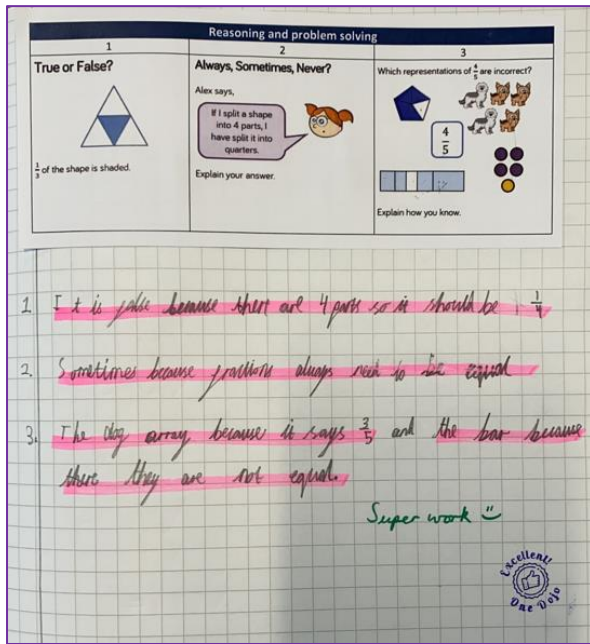 Reasoning and problem solving
1
2
3
True or False?
1/3 of the shape is shaded.
Always, Sometimes, Never?
Alex says,
If I split a shape
into 4 parts, I
have split it into
quarters.
Explain your answer.
Which representations of 4/5 are incorrect?
4/5
Explain how you know.
1 It is false because there are 4 parts so it should be 1/4
2. Sometimes because fractions always need to be equal
3. The dog array because it says 3/5 and the bar because
there they are not equal.
Super work
Excellent!
One Dojo